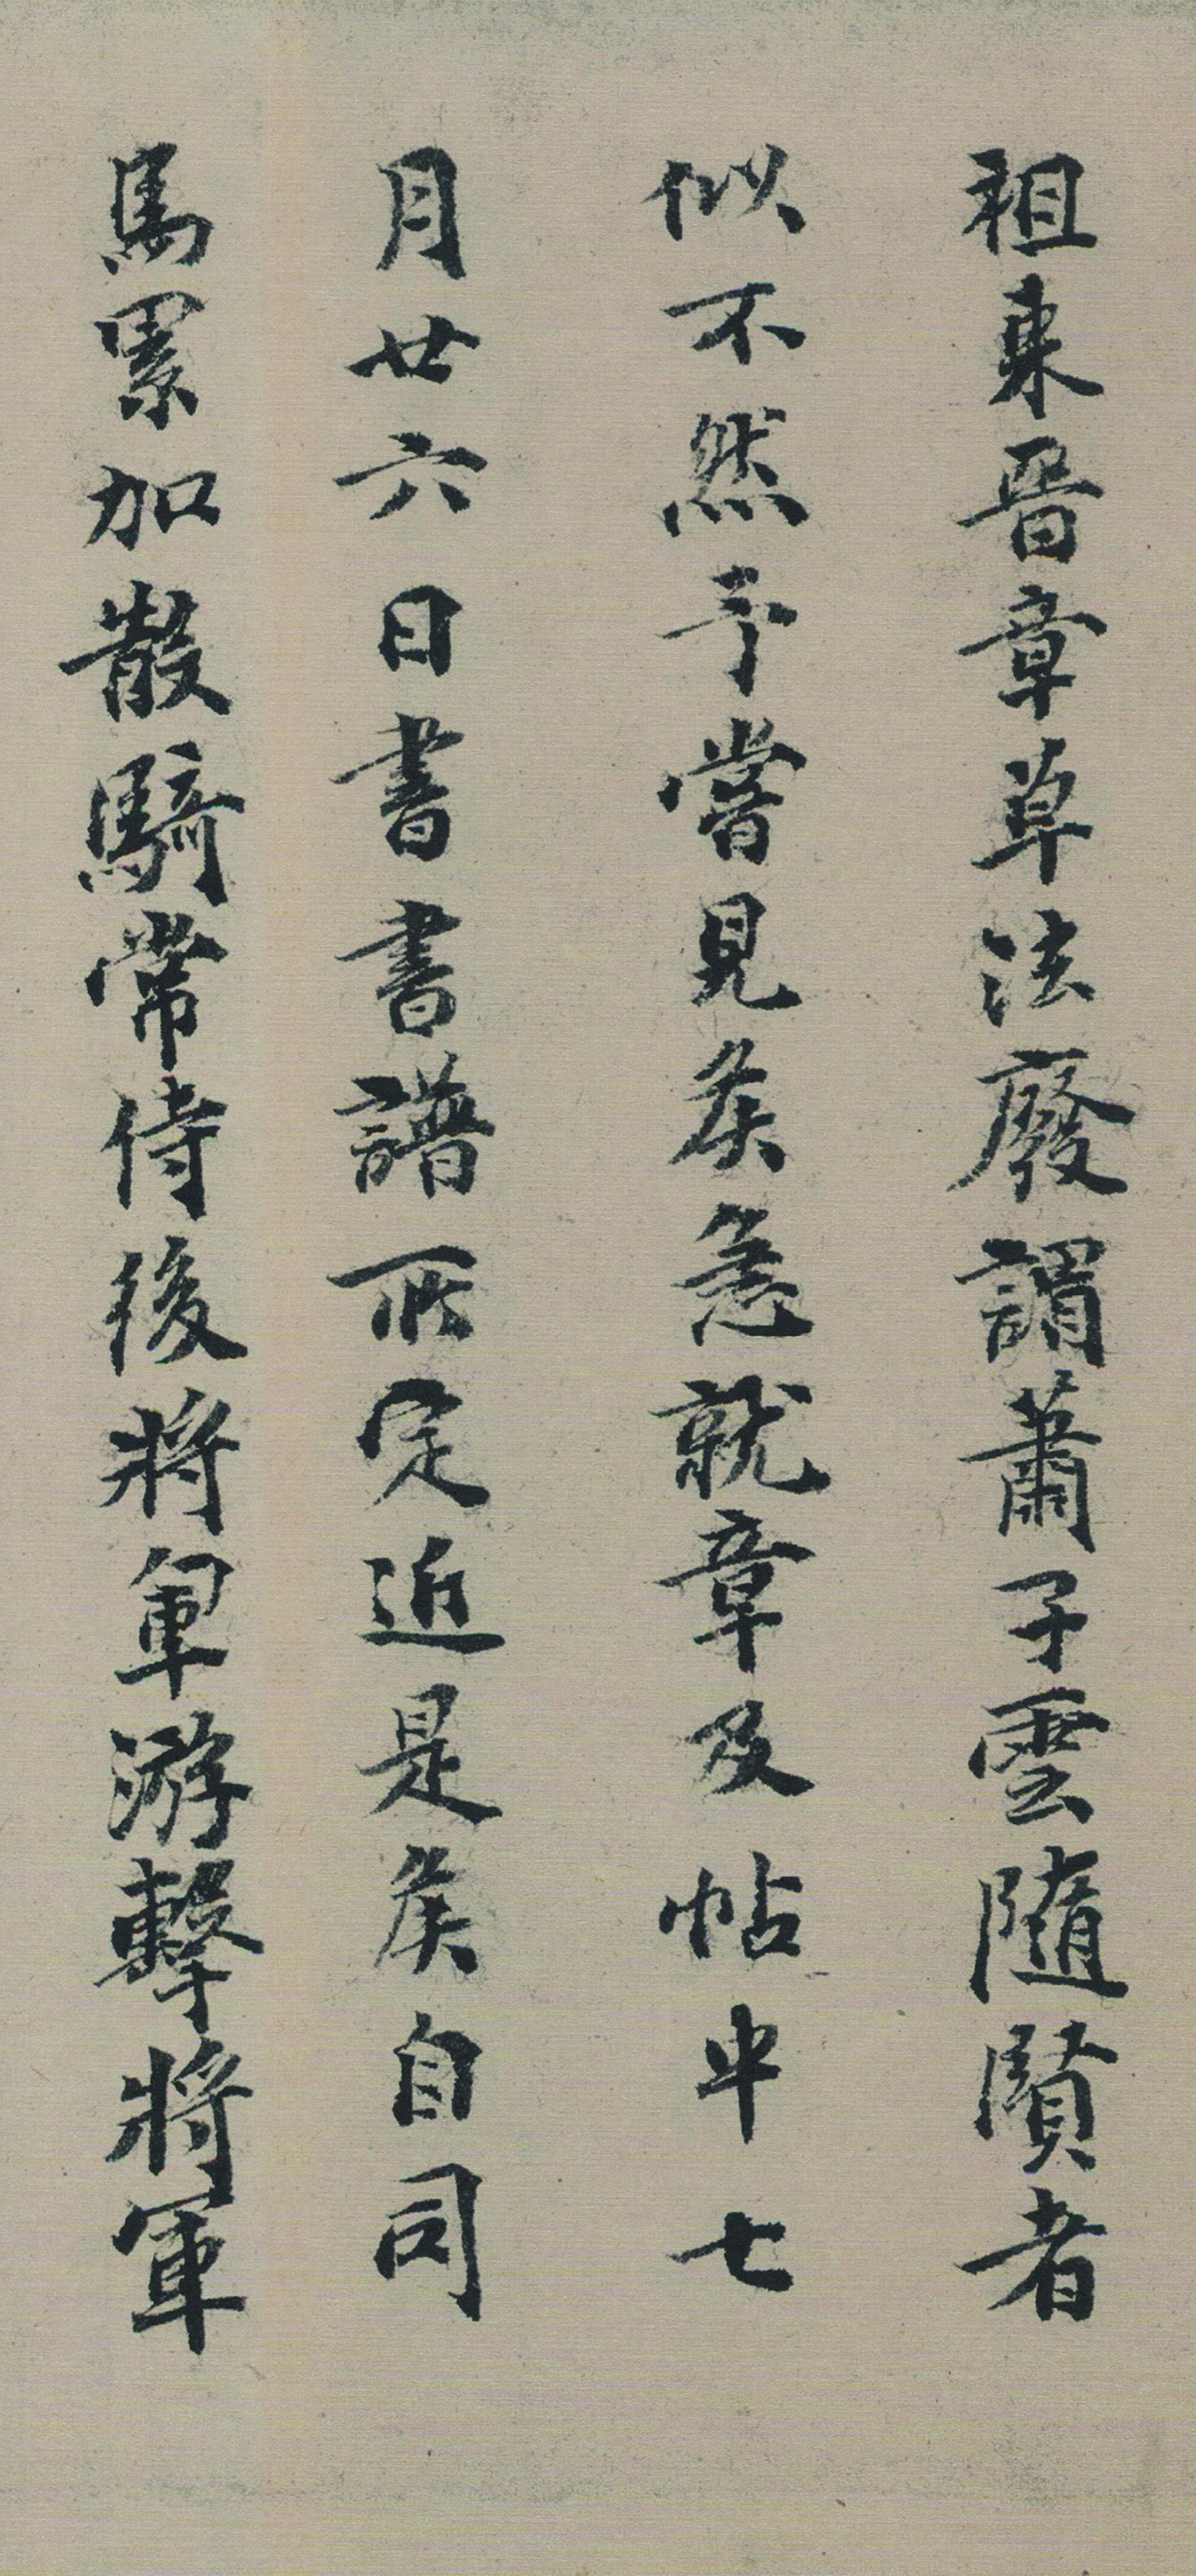 祖東晉章草法廢謂蕭子雲隨賢者
似不然予嘗見矦急就章及帖中七
月廿六日書書譜所定近是矦自司
馬累加散騎常侍後將軍游擊將軍